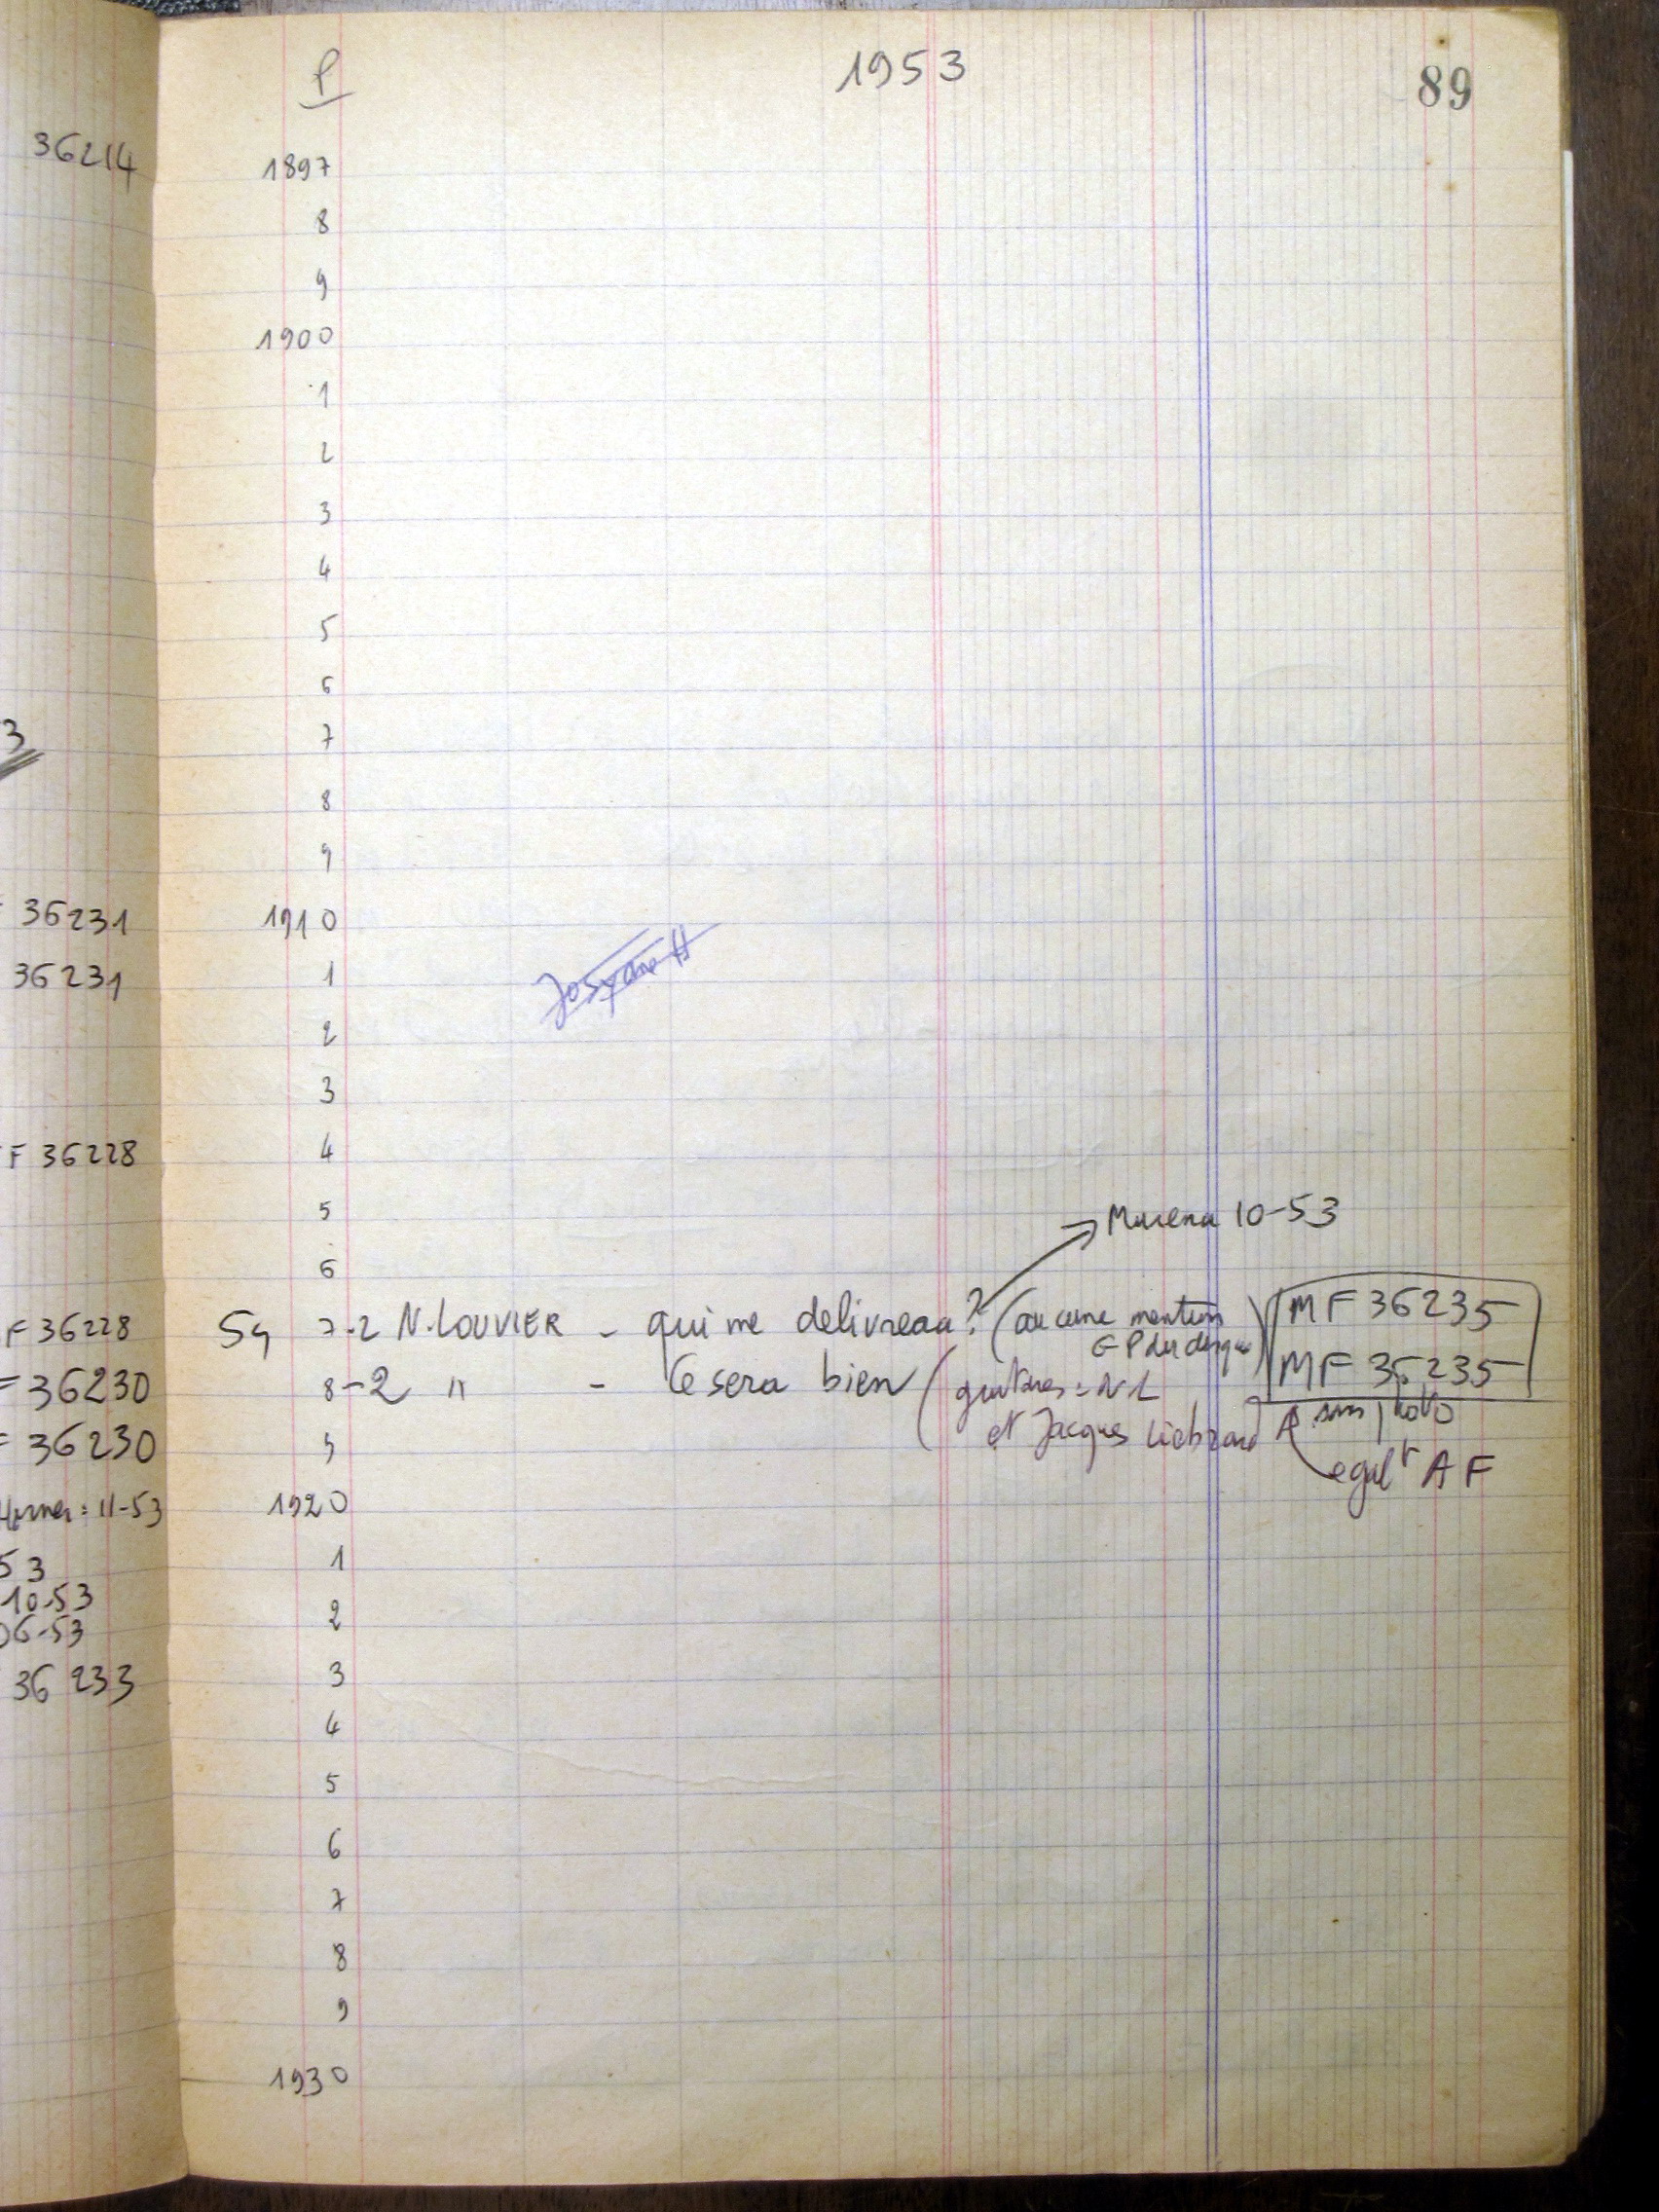 P
1953
89
1897
8
9
1900
1
2
3
4
5
6
7
8
9
1910
1
2
3
4
5
Murena 10-53
6
54 7-2 N. LOUVIER - qui me delivrera? (aucune mention
MF 36235
8-2 " - Ce sera bien (guitares = N L
MF 36235
et Jacques Liebrard
sans photo
9
egalt AF
1920
1
2
3
4
5
6
7
8
9
1930
36214
3
36231
36231
F 36228
F 36228
F 36230
F 36230
11-53
53
10-53
06-53
36 233